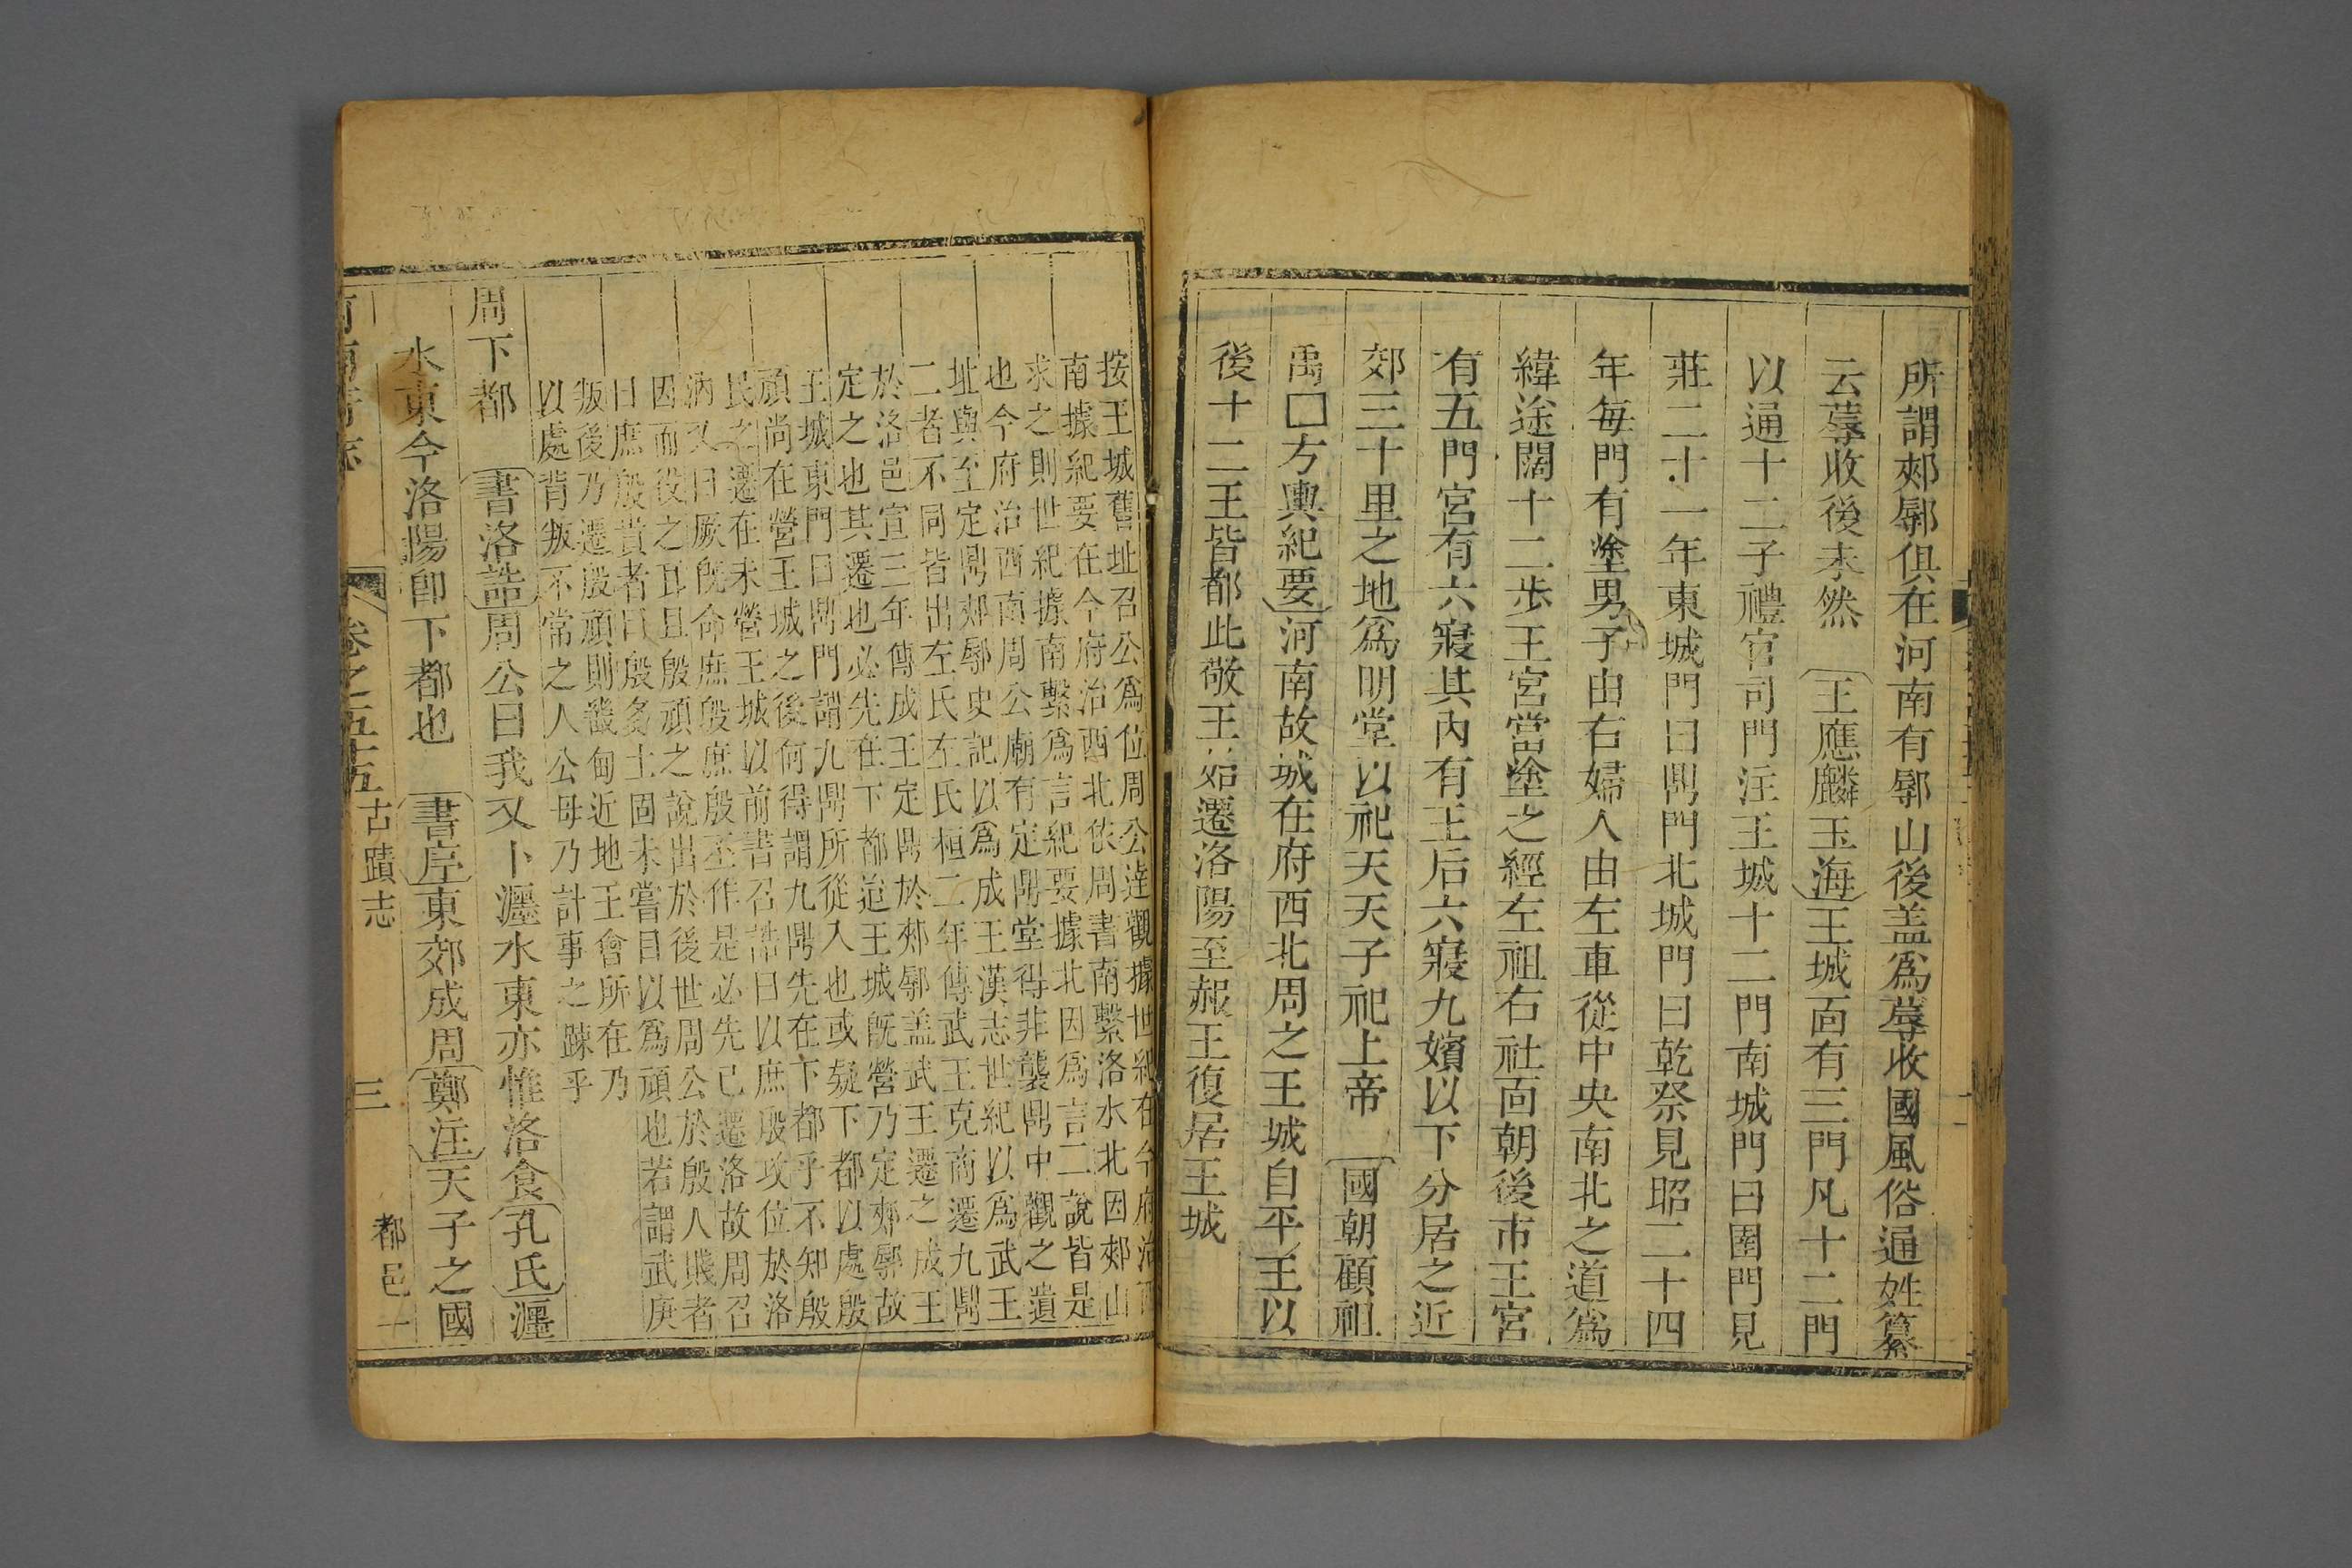 所謂郟鄏俱在河南有鄏山後盖爲蓐收國風俗通姓纂
云蓐收後未然　王應麟玉海王城面有三門凡十二門
以通十二子禮官司門注王城十二門南城門曰圉門見
莊二十一年東城門曰鼎門北城門曰乾祭見昭二十四
年每門有塗男子由右婦人由左車從中央南北之道爲
緯途闊十二步王宮當塗之經左祖右社面朝後市王宮
有五門宮有六寢其內有王后六寢九嬪以下分居之近
郊三十里之地爲明堂以祀天天子祀上帝　國朝顧祖
禹□方輿紀要河南故城在府西北周之王城自平王以
後十二王皆都此敬王始遷洛陽至赧王復居王城
按王城舊址召公爲位周公達觀據世紀在今府治西
南據紀要在今府治西北依周書南繫洛水北因郟山
求之則世紀據南繫爲言紀要據北因爲言二說皆是
也今府治西南周公廟有定鼎堂得非襲鼎中觀之遺
址與至定鼎郟鄏史記以爲成王漢志世紀以爲武王
二者不同皆出左氏左氏桓二年傳武王克商遷九鼎
於洛邑宣三年傳成王定鼎於郟鄏盖武王遷之成王
定之也其遷也必先在下都迨王城既營乃定郟鄏故
王城東門曰鼎門謂九鼎所從入也或疑下都以處殷
頑尚在營王城之後何得謂九鼎先在下都乎不知殷
民之遷在未營王城以前書召誥曰以庶殷攻位於洛
汭又曰厥既命庶殷庶殷丕作是必先已遷洛故周召
因而役之耳且殷頑之說出於後世周公於殷人賤者
曰庶殷貴者曰殷多士固未嘗目以爲頑也若謂武庚
叛後乃遷殷頑則畿甸近地王會所在乃
以處背叛不常之人公毋乃計事之踈乎
周下都　書洛誥周公曰我又卜瀍水東亦惟洛食孔氏瀍
水東今洛陽卽下都也　書序東郊成周鄭注天子之國
卷之五十五　古蹟志　三　都邑一